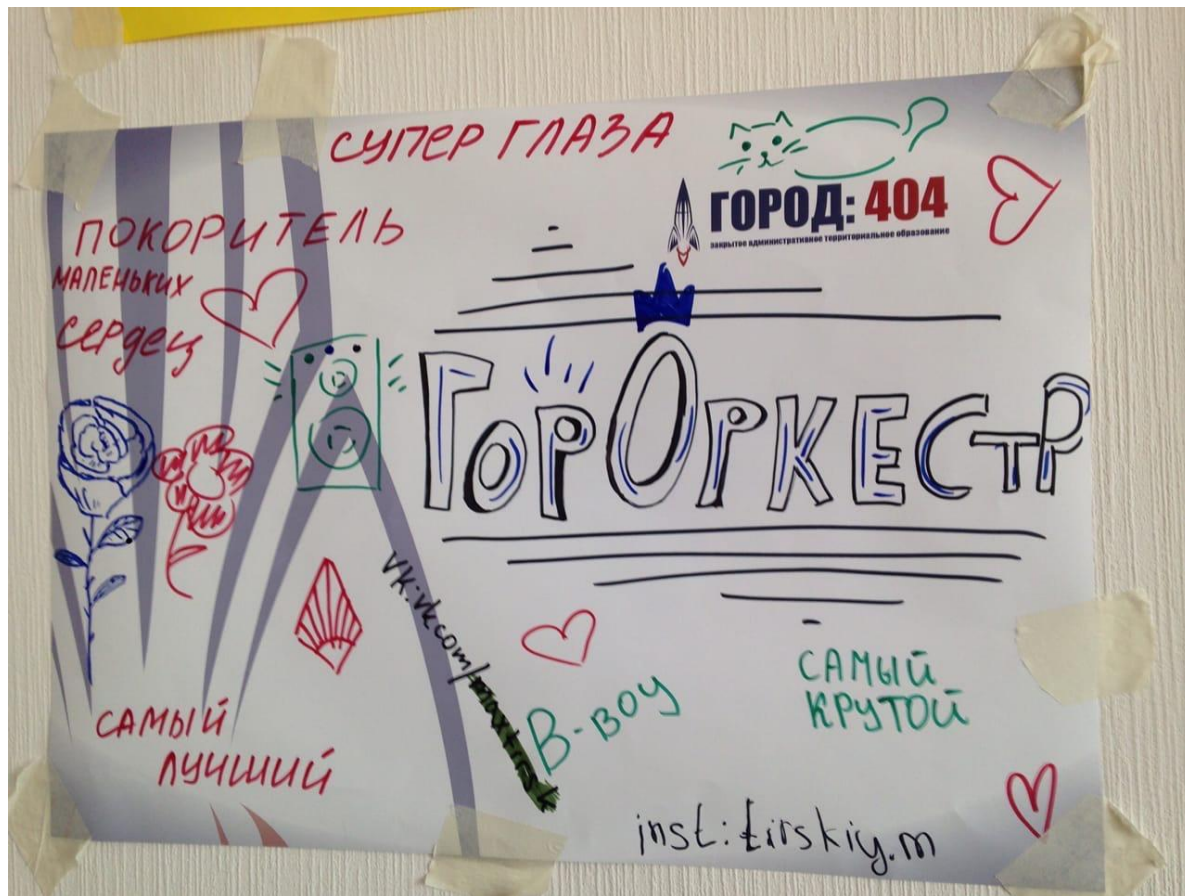 СУПЕР ГЛАЗА
ГОРОД: 404
закрытое административное территориальное образование
ПОКОРИТЕЛЬ
МАЛЕНЬКИХ
СЕРДЕЦ
ГОРОРКЕСТР
VK:vk.com/
B-BOY
САМЫЙ
КРУТОЙ
САМЫЙ
ЛУЧШИЙ
inst:tirskiy.m